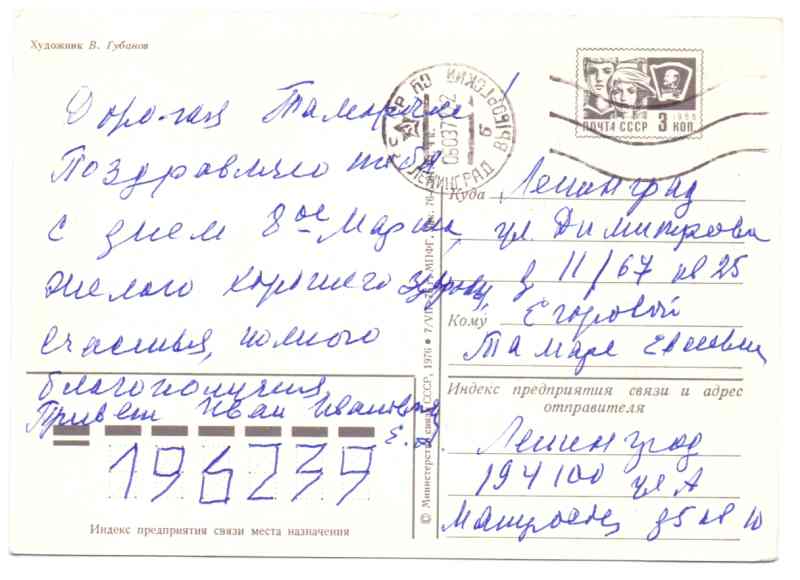 Художник В. Губанов
Дорогая Тамарочка !
Поздравляю тебя
с днем 8ое Марта,
желаю хорошего здоровья,
счастья, полного
благополучия
Привет Иван Ивановичу
196239
Индекс предприятия связи места назначения
© Министерство связи СССР, 1976
ЛЕНИНГРАД ВЫБОРГСКИЙ
ПОЧТА СССР 3 КОП.
1966
Куда Ленинград
ул. Димитрова
д 11/67 кв 25
Кому Егоровой
Тамаре
Индекс предприятия связи и адрес
отправителя
Ленинград
194100 ул А
д 5 кв 10